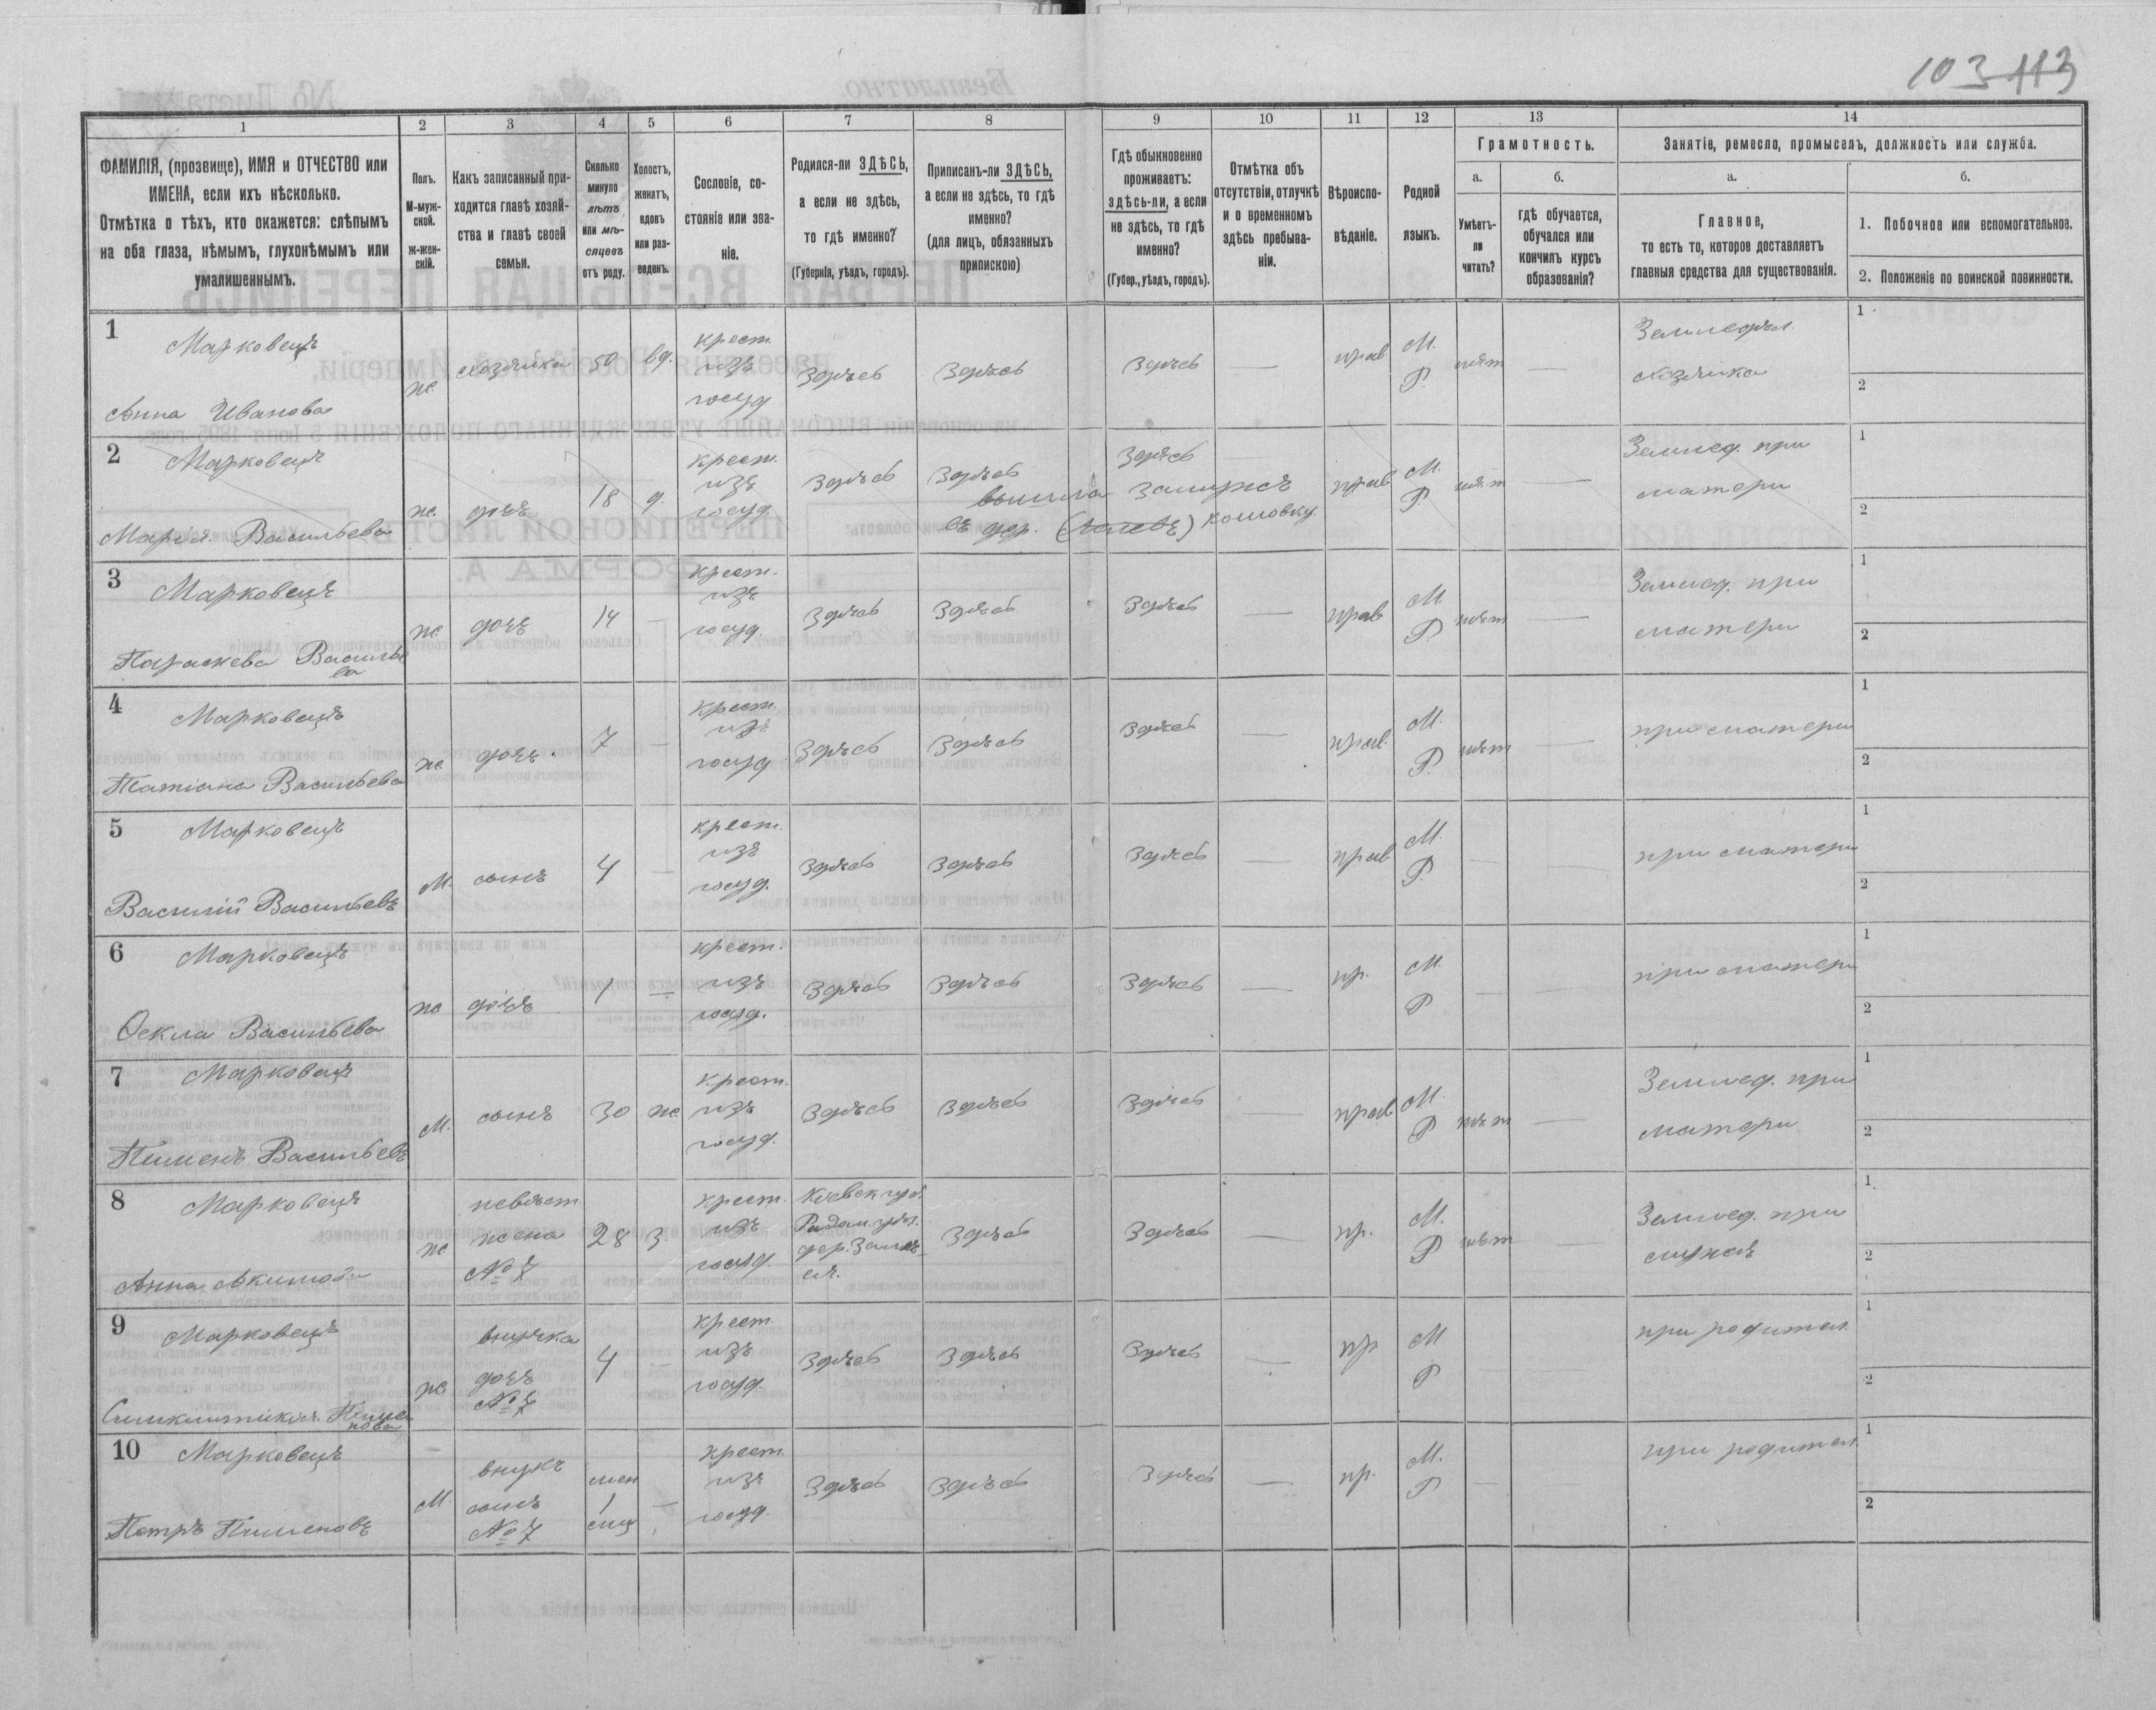 103 113
1 2 3 4 5 6 7 8 9 10 11 12 13 14
ФАМИЛІЯ, (прозвище), ИМЯ и ОТЧЕСТВО или
ИМЕНА, если ихъ нѣсколько.
Отмѣтка о тѣхъ, кто окажется: слѣпымъ
на оба глаза, нѣмымъ, глухонѣмымъ или
умалишеннымъ.
Полъ.
М-муж-
ской.
ж-жен-
скій.
Какъ записанный при-
ходится главѣ хозяй-
ства и главѣ своей
семьи.
Сколько
минуло
лѣтъ
или мѣ-
сяцевъ
отъ роду.
Холостъ,
женатъ,
вдовъ
или раз-
веденъ.
Сословіе, со-
стояніе или зва-
ніе.
Родился-ли ЗДѢСЬ,
а если не здѣсь,
то гдѣ именно?
(Губернія, уѣздъ, городъ).
Приписанъ-ли ЗДѢСЬ,
а если не здѣсь, то гдѣ
именно?
(для лицъ, обязанныхъ
припискою)
Гдѣ обыкновенно
проживаетъ:
здѣсь-ли, а если
не здѣсь, то гдѣ
именно?
(Губер., уѣздъ, городъ).
Отмѣтка объ
отсутствіи, отлучкѣ
и о временномъ
здѣсь пребыва-
ніи.
Вѣроиспо-
вѣданіе.
Родной
языкъ.
Грамотность.
а.
Умѣетъ-
ли
читать?
б.
гдѣ обучается,
обучался или
кончилъ курсъ
образованія?
Занятіе, ремесло, промыселъ, должность или служба.
а.
Главное,
то есть то, которое доставляетъ
главныя средства для существованія.
б.
1. Побочное или вспомогательное.
2. Положеніе по воинской повинности.
1 Марковецъ
Анна Иванова
ж. хозяйка 50 вд.
крест.
изъ
госуд
здѣсь здѣсь здѣсь — прав М.
Р. нѣт —
Земледѣл.
хозяйка
1
2
2 Марковецъ
Марія Васильева
ж. дочь 18 д.
крест.
изъ
госуд.
здѣсь здѣсь здѣсь
вышла замужъ
въ дер. кошовку
прав М.
Р. нѣт —
Землед. при
матери
1
2
3 Марковецъ
Параскева Василье
ва
ж. дочь 14 —
крест.
изъ
госуд.
здѣсь здѣсь здѣсь — прав М
Р нѣт —
Землед. при
матери
1
2
4 Марковецъ
Татіана Васильева
ж. дочь. 7 —
крест.
изъ
госуд
здѣсь здѣсь здѣсь — прав. М.
Р. нѣт —
при матери
1
2
5 Марковецъ
Василій Васильевъ
М. сынъ 4 —
крест.
изъ
госуд.
здѣсь здѣсь здѣсь — прав М
Р. —
при матери
1
2
6 Марковецъ
Ѳекла Васильева
ж дочь 1 —
крест.
изъ
госуд.
здѣсь здѣсь здѣсь — пр. М.
Р — —
при матери
1
2
7 Марковецъ
Пименъ Васильевъ
М. сынъ 30 ж
крест.
изъ
госуд.
здѣсь здѣсь здѣсь — прав М.
Р нѣт —
Землед. при
матери
1
2
8 Марковецъ
Анна Акимова
ж
невѣст
жена
№ 7
28 З.
крест.
изъ
госуд.
Кіевск губ.
Радом. уѣз.
дер.
здѣсь здѣсь — пр. М.
Р нѣт —
Землед. при
мужѣ
1
2
9 Марковецъ
Пиме
нова
ж.
внучка
дочь
№ 7
4 —
крест
изъ
госуд.
здѣсь здѣсь здѣсь — пр М
Р —
при родител.
1
2
10 Марковецъ
Петръ Пименовъ
М.
внукъ
сынъ
№ 7
мен
1
мц
—
крест.
изъ
госуд.
здѣсь здѣсь здѣсь — пр. М.
Р —
при родител.
1
2